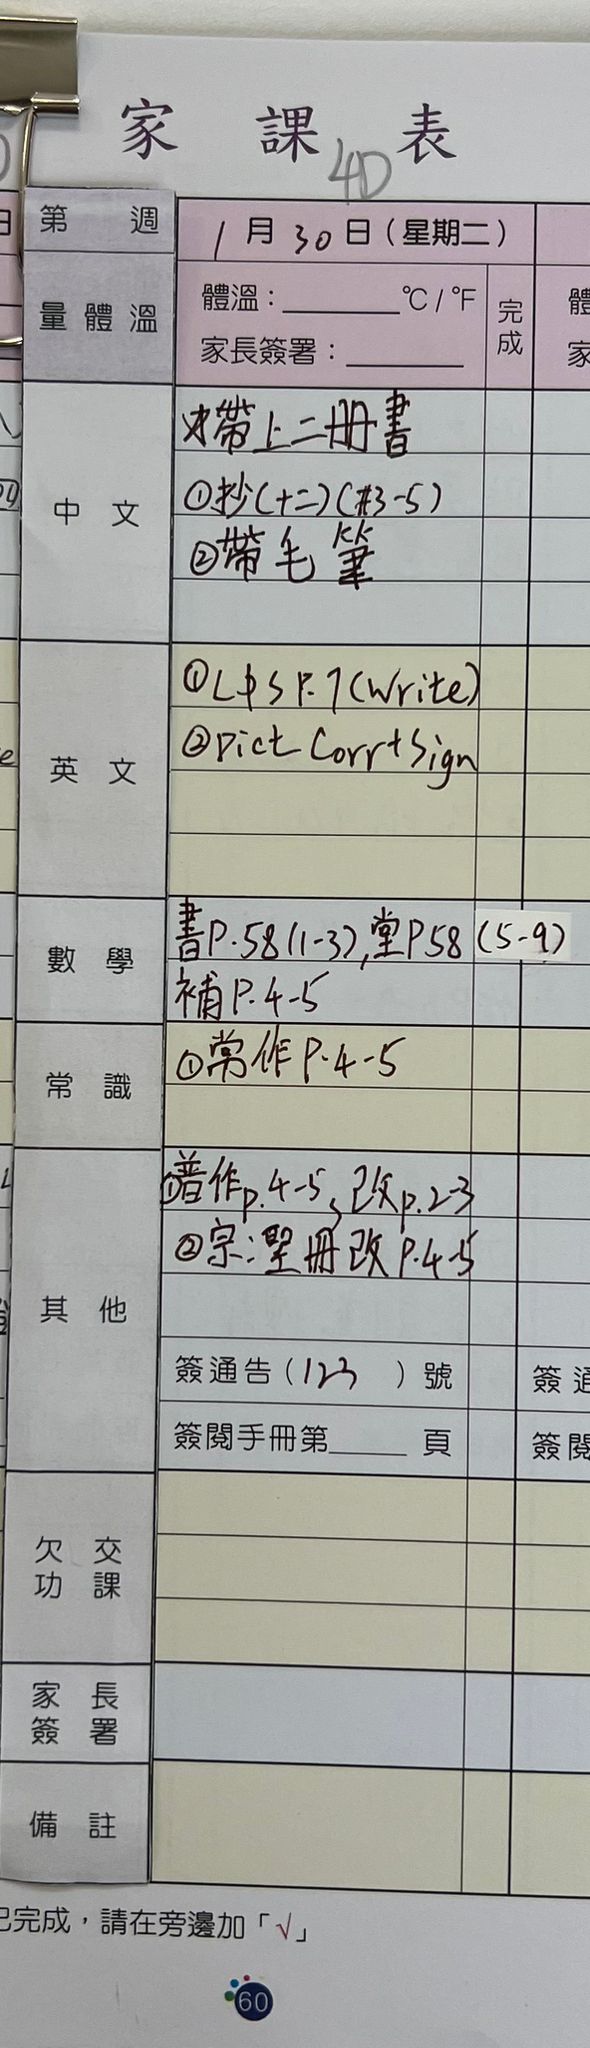 家課表
4D
第 週
1月30日(星期二)
量體溫
體溫:______°C / °F
家長簽署:______
完成
中文
*帶上二冊書
①抄(十二)(#3-5)
②帶毛筆
英文
①L&S P.7(Write)
②Dict Corr+Sign
數學
書P.58(1-3),堂P58(5-9)
補P.4-5
常識
①常作P.4-5
其他
①普作p.4-5、改p.2-3
②宗:聖冊改P.4-5
簽通告(123)號
簽閱手冊第____頁
欠交功課
家長簽署
備註
已完成,請在旁邊加「√」
60